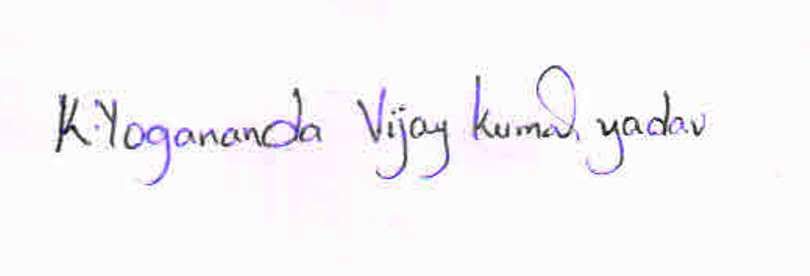 K.Yogananda Vijay kumar yadav